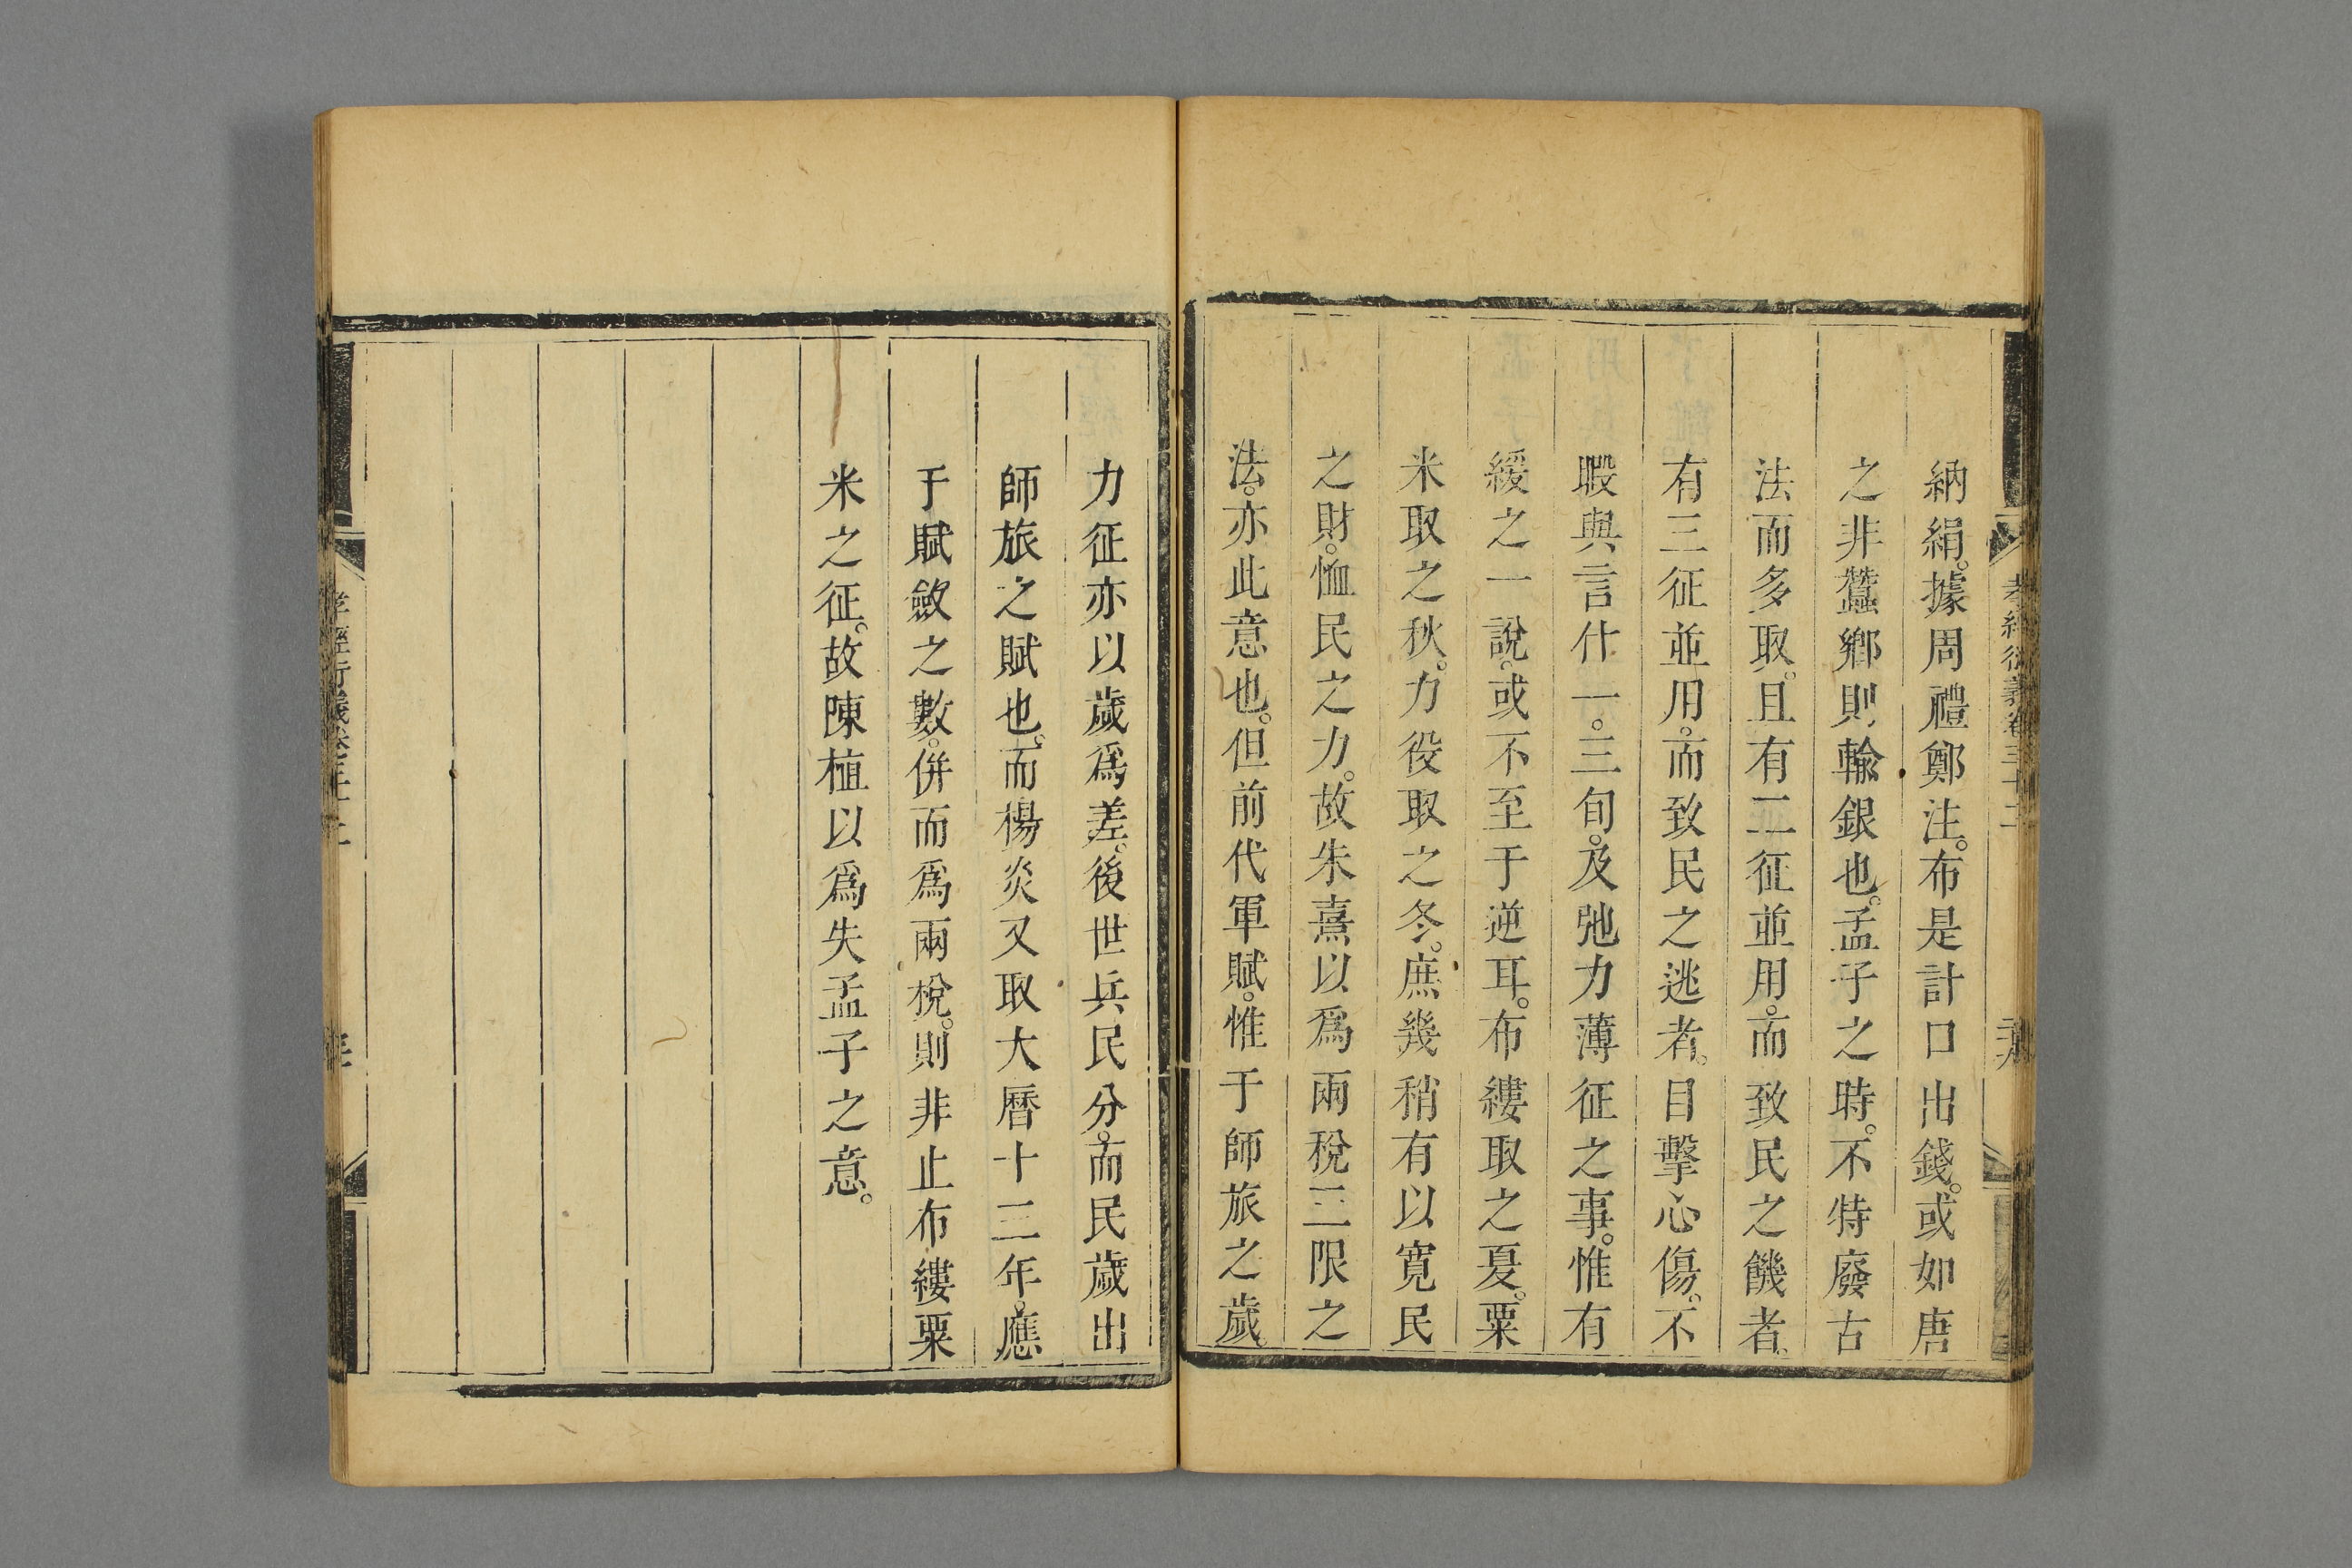 納絹。據周禮鄭注。布是計口出錢。或如唐
之非蠶鄉則輸銀也。孟子之時。不特廢古
法而多取。且有二征並用。而致民之饑者。
有三征並用。而致民之逃者。目擊心傷。不
暇與言什一。三旬。及弛力薄征之事。惟有
緩之一說。或不至于逆耳。布縷取之夏。粟
米取之秋。力役取之冬。庶幾稍有以寬民
之財。恤民之力。故朱熹以爲兩稅三限之
法。亦此意也。但前代軍賦。惟于師旅之歲。
力征亦以歲爲差。後世兵民分。而民歲出
師旅之賦也。而楊炎又取大曆十三年。應
于賦斂之數。併而爲兩稅。則非止布縷粟
米之征。故陳植以爲失孟子之意。